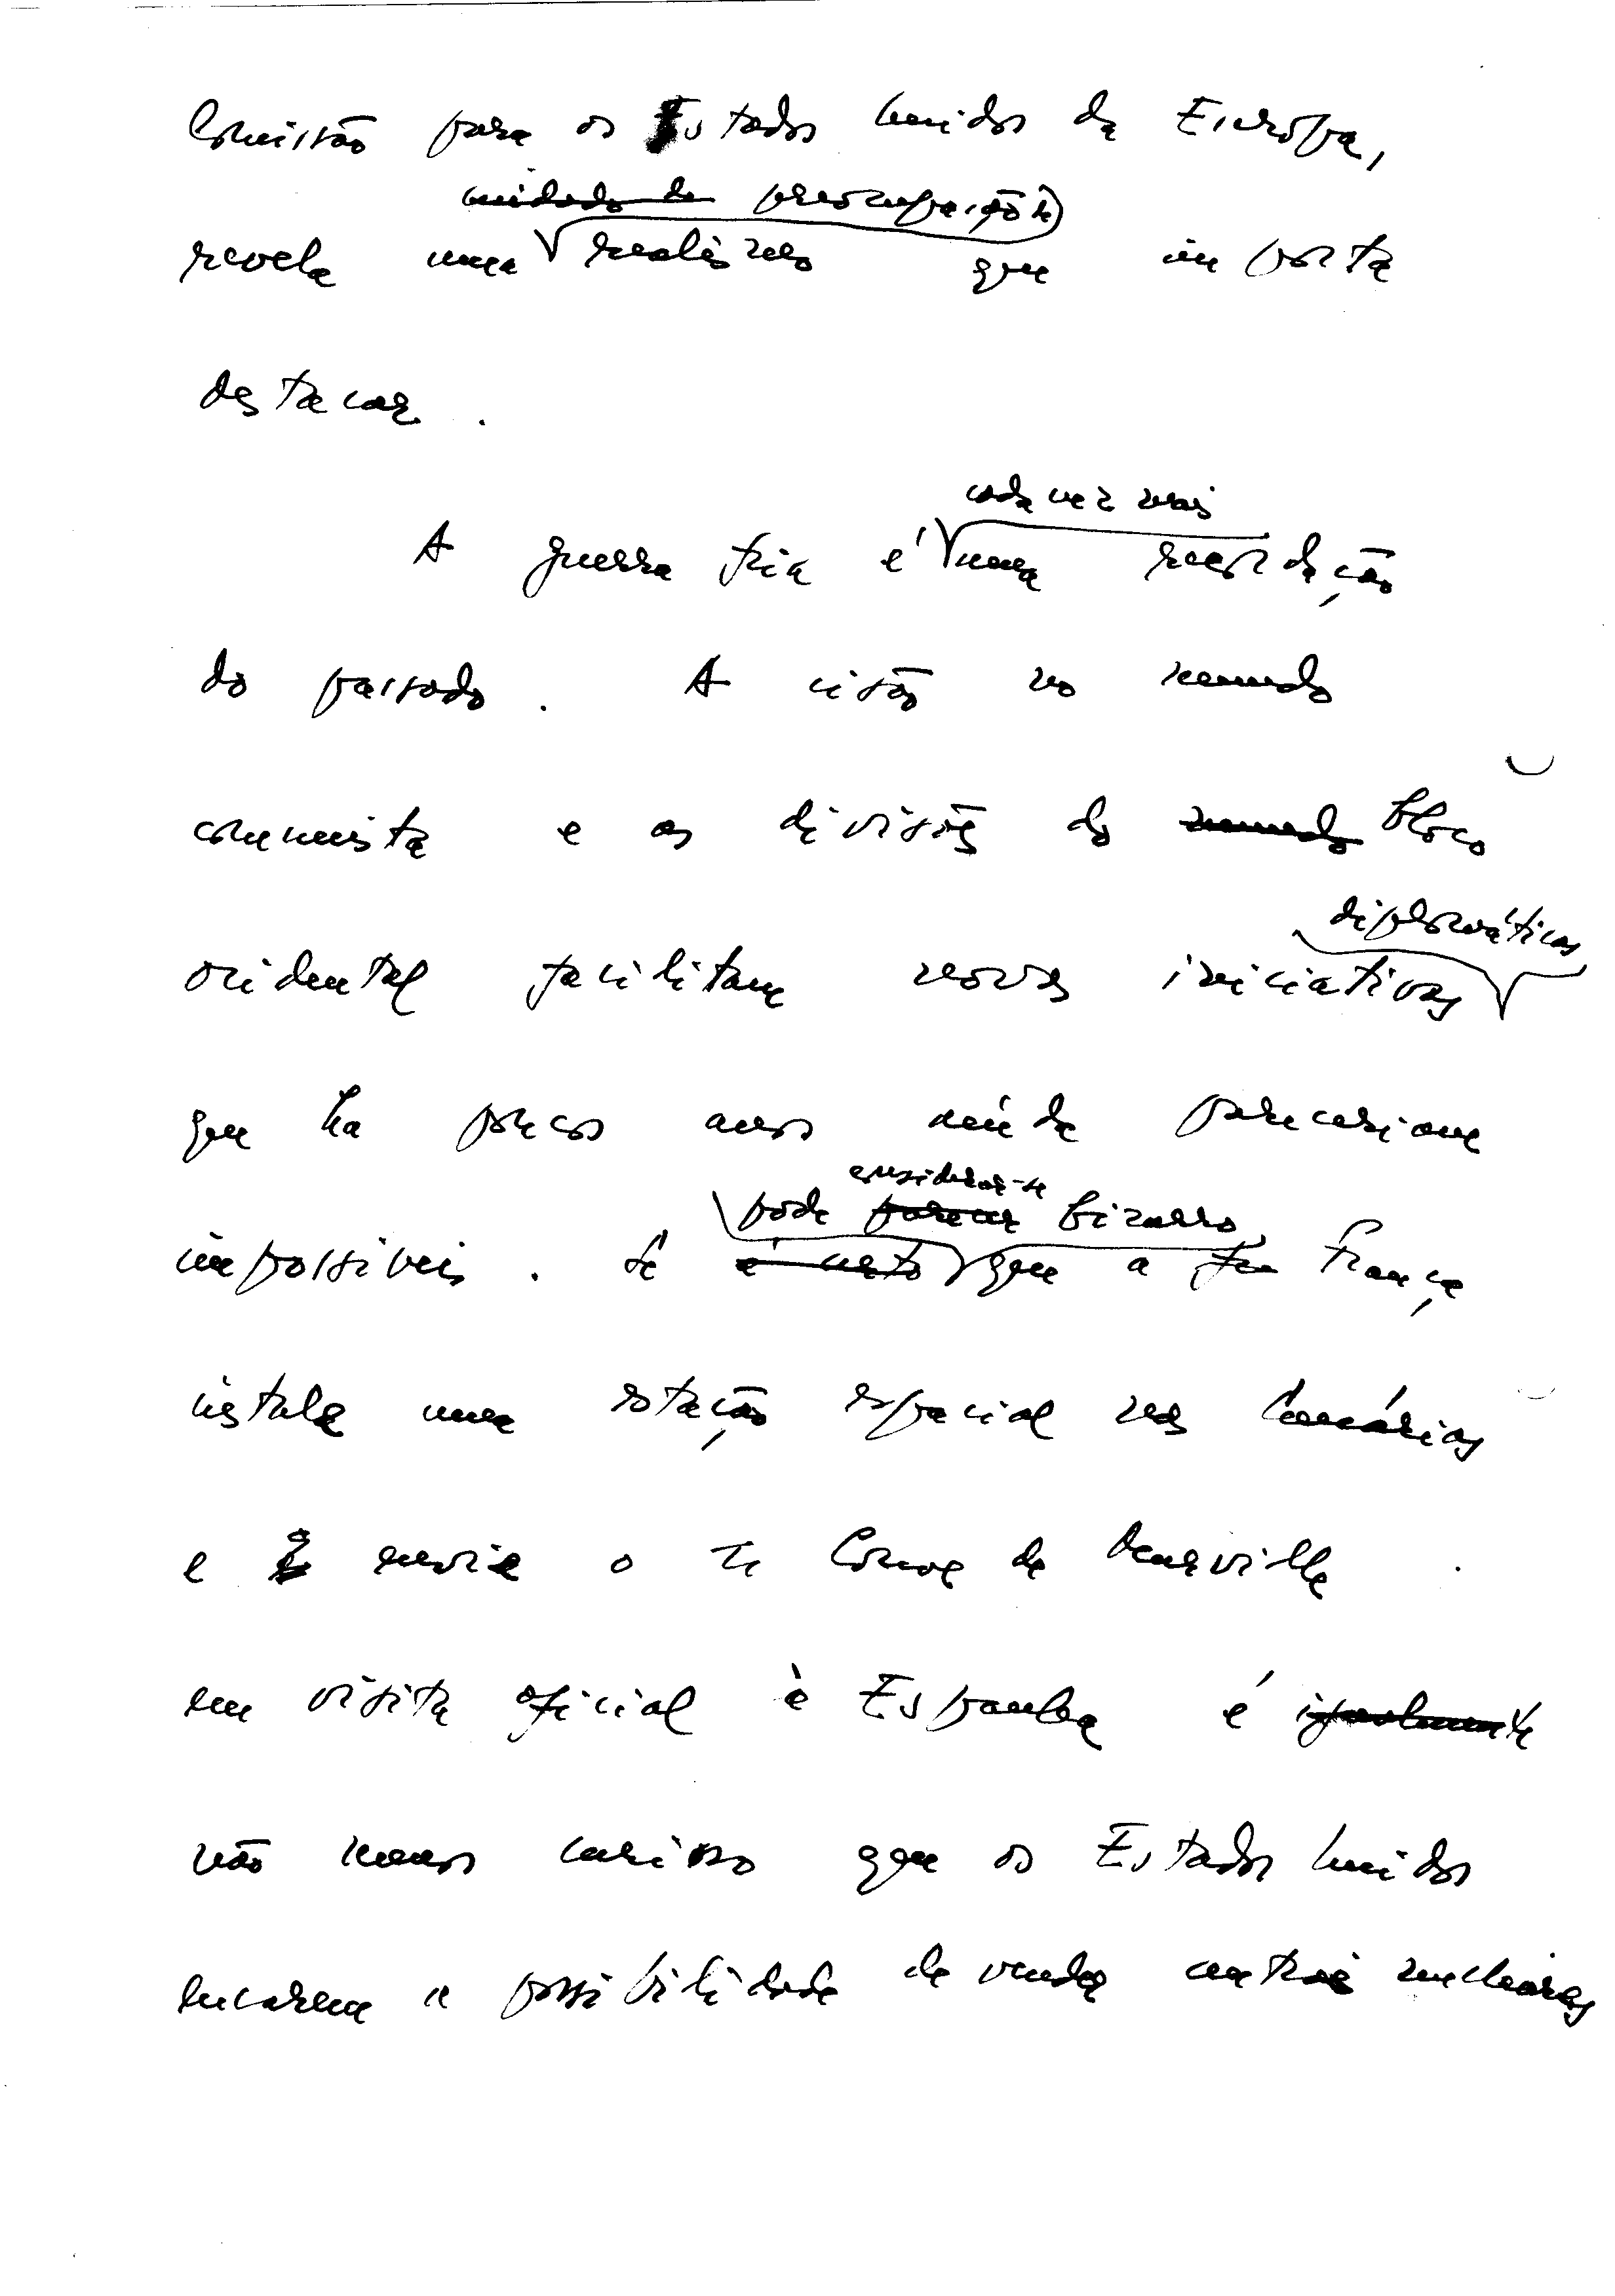 Comissão para os Estados Unidos da Europa,
cuidado de preocupação de
revela uma realismo que importa
destacar.
cada vez mais
A guerra fria é uma recordação
do passado. A cisão no mundo
comunista e as divisões do mundo bloco
diplomáticas
ocidental facilitam novas iniciativas
que ha poucos anos ainda pareceriam
considerar-se
pode parecer bizarro
impossíveis. Se é certo que a fra França
instale uma estação espacial nas Canárias
e envie o de Couve de Murville
em visita oficial à Espanha é igualmente
não menos curioso que os Estados Unidos
encarem a possibilidade de vender nucleares